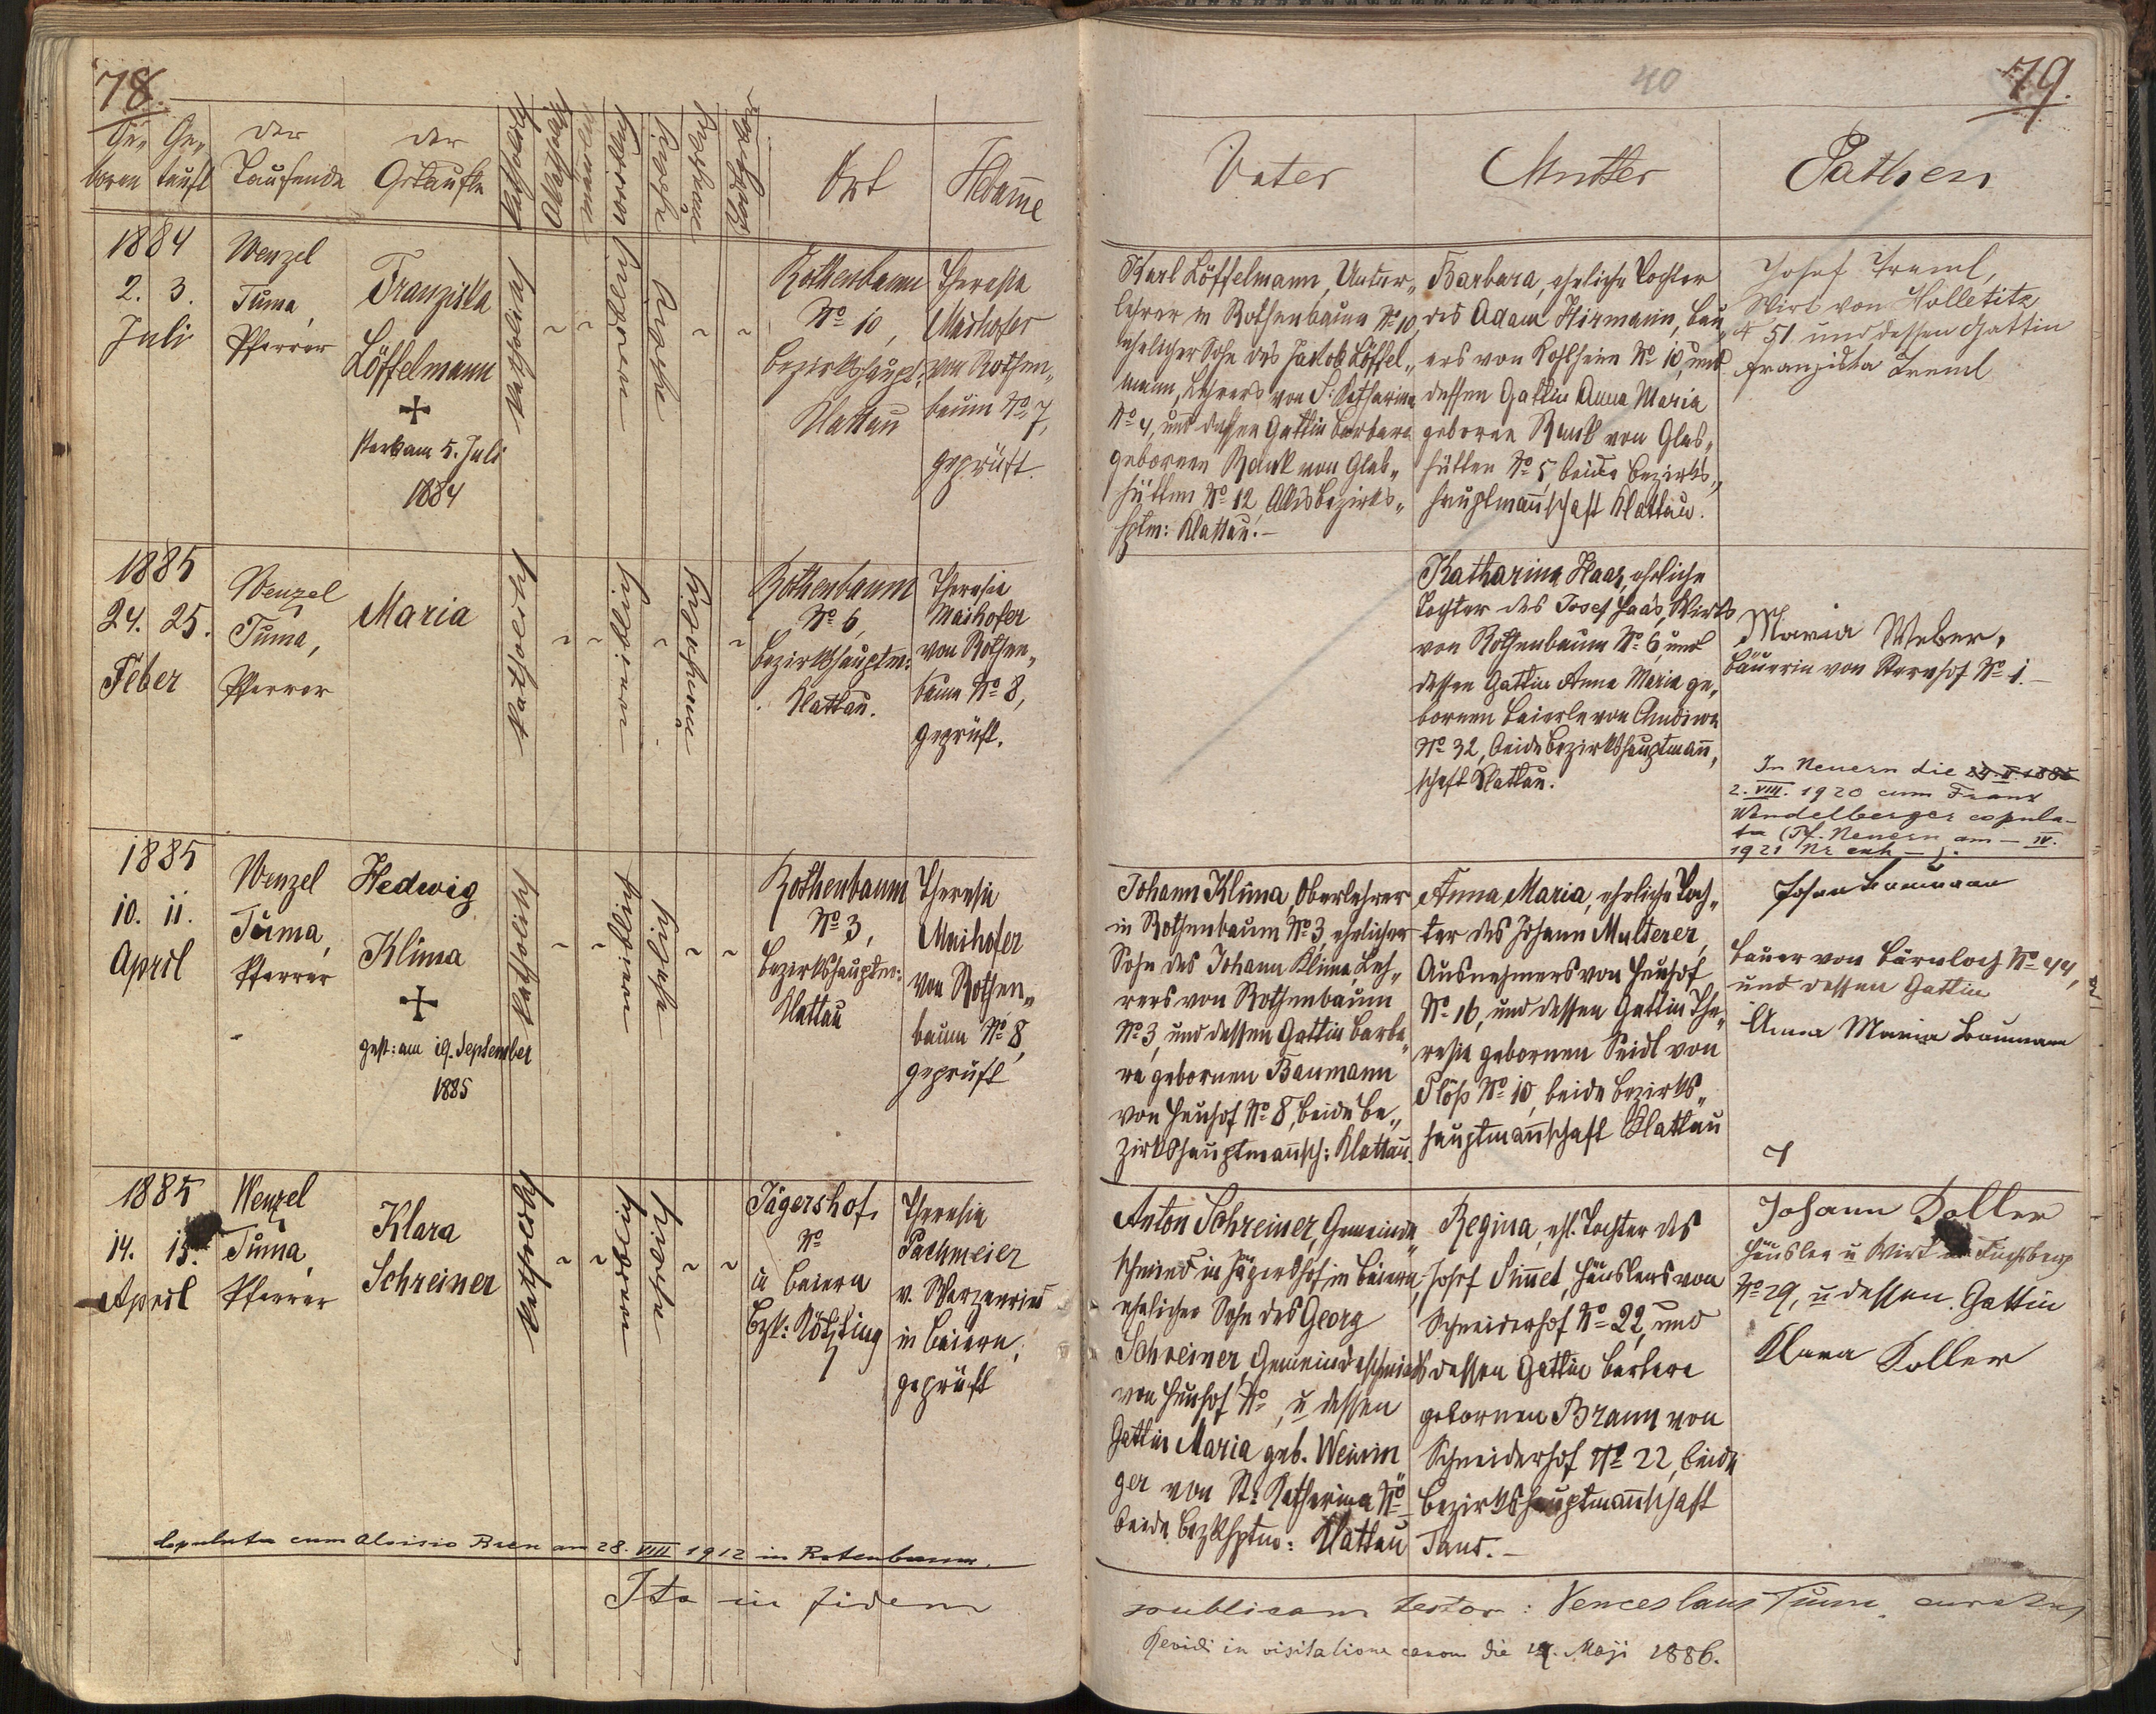 78.
Ge-
boren
Ge-
tauft
der
Taufende
der
Getaufte
katholisch
Akatholisch
männlich
weiblich
eheliche
unehelich
Ort
Hebam̄e
1884
2. 3.
Juli
Wenzel
Tuma,
Pfarrer
Franziska
Löffelmann
+
starb am 5. Juli
1884
katholisch
weiblich
eheliche
Rothenbaum
No 10,
Bezirkshaupt:
Klattau
Theresia
Maihofer
von Rothen„
baum No 7,
geprüft.
1885
24. 25.
Feber
Wenzel
Tuma,
Pfarrer
Maria
katholisch
weiblich
unehelich
Rothenbaum
No 6,
Bezirkshauptm:
Klattau.
Theresia
Maihofer
von Rothen„
baum No 8,
geprüft.
1885
10. 11.
April
Wenzel
Tuma,
Pfarrer
Hedwig
Klima
+
gest: am 19. September
1885
katholisch
weiblich
eheliche
Rothenbaum
No 3,
Bezirkshauptm:
Klattau
Theresia
Maihofer
von Rothen„
baum No 8,
geprüft
1885
14. 15.
April
Wenzel
Tuma,
Pfarrer
Klara
Schreiner
katholisch
weiblich
eheliche
Jägershof
No
in Beiern
Bzk: Kötzting
Theresia
Pachmeier
v. Warzenried
in Beiern,
geprüft
Copulata cum Aloisio Bren am 28. VIII 1912 in Rotenbaum.
Ita in fidem
79.
40
Vater
Mutter
Pathen
Karl Löffelmann, Unter„
lehrer in Rothenbaum No 10,
ehelicher Sohn des Jakob Löffel„
mann, Lehrers von S. Katharina
No 4, und dessen Gattin Barbara
gebornen Rank von Glas„
hütten No 12, Alles Bezirks„
hptm: Klattau.–
Barbara, eheliche Tochter
des Adam Hirmann, Bau„
ers von Kohlheim No 10, und
dessen Gattin Anna Maria
geborne Rank von Glas„
hütten No 5, beide Bezirks„
hauptman̄schaft Klattau.
Josef Treml,
Wirt von Holletitz
No 51 und dessen Gattin
Franziska Treml
Katharina Haas, eheliche
Tochter des Josef Haas, Wirts
von Rothenbaum No 6, und
dessen Gattin Anna Maria ge„
bornen Beierle von Chudiwa
No 32, beide Bezirkshauptman̄„
schaft Klattau.
Maria Weber,
Bäuerin von Kernhof No 1.–
In Neuern die
2. VIII. 1920 cum Franz
Wendelberger copula-
ta (Pf. Neuern am – IV.
1921 Nr exh –).
Johann Klima, Oberlehrer
in Rothenbaum No 3, ehelicher
Sohn des Johann Klima, Leh„
rers von Rothenbaum
No 3, und dessen Gattin Barba„
ra gebornen Baumann
von Heuhof No 8, beide Be„
zirkshauptman̄sch: Klattau.
Anna Maria, eheliche Toch„
ter des Johann Multerer,
Ausnehmers von Heuhof
No 16, und dessen Gattin The„
resia gebornen Seidl von
Plöß No 10, beide Bezirks„
hauptman̄schaft Klattau
Johan Baumann
Bauer von Bärnloch No 44,
und dessen Gattin
Anna Maria Baumann
Anton Schreiner, Gemeinde„
schmied in Jägershof in Beiern,
ehelicher Sohn des Georg
Schreiner, Gemeindeschmieds
von Heuhof No , u dessen
Gattin Maria geb. Weinin„
ger von St. Katharina No
beide Bezkhptm: Klattau
Regina, ehl. Tochter des
Josef Sim̄et, Häuslers von
Schneiderhof No 22, und
dessen Gattin Barbara
gebornen Braun von
Schneiderhof No 22, beide
Bezirkshauptman̄schaft
Taus.–
Johann Koller
Häusler u Wirt Fuchsberg
No 29, u dessen Gattin
Klara Koller
publicam testor: Venceslaus Tuma, curatus
Revidi in visitatione canon die 14. Maji 1886.